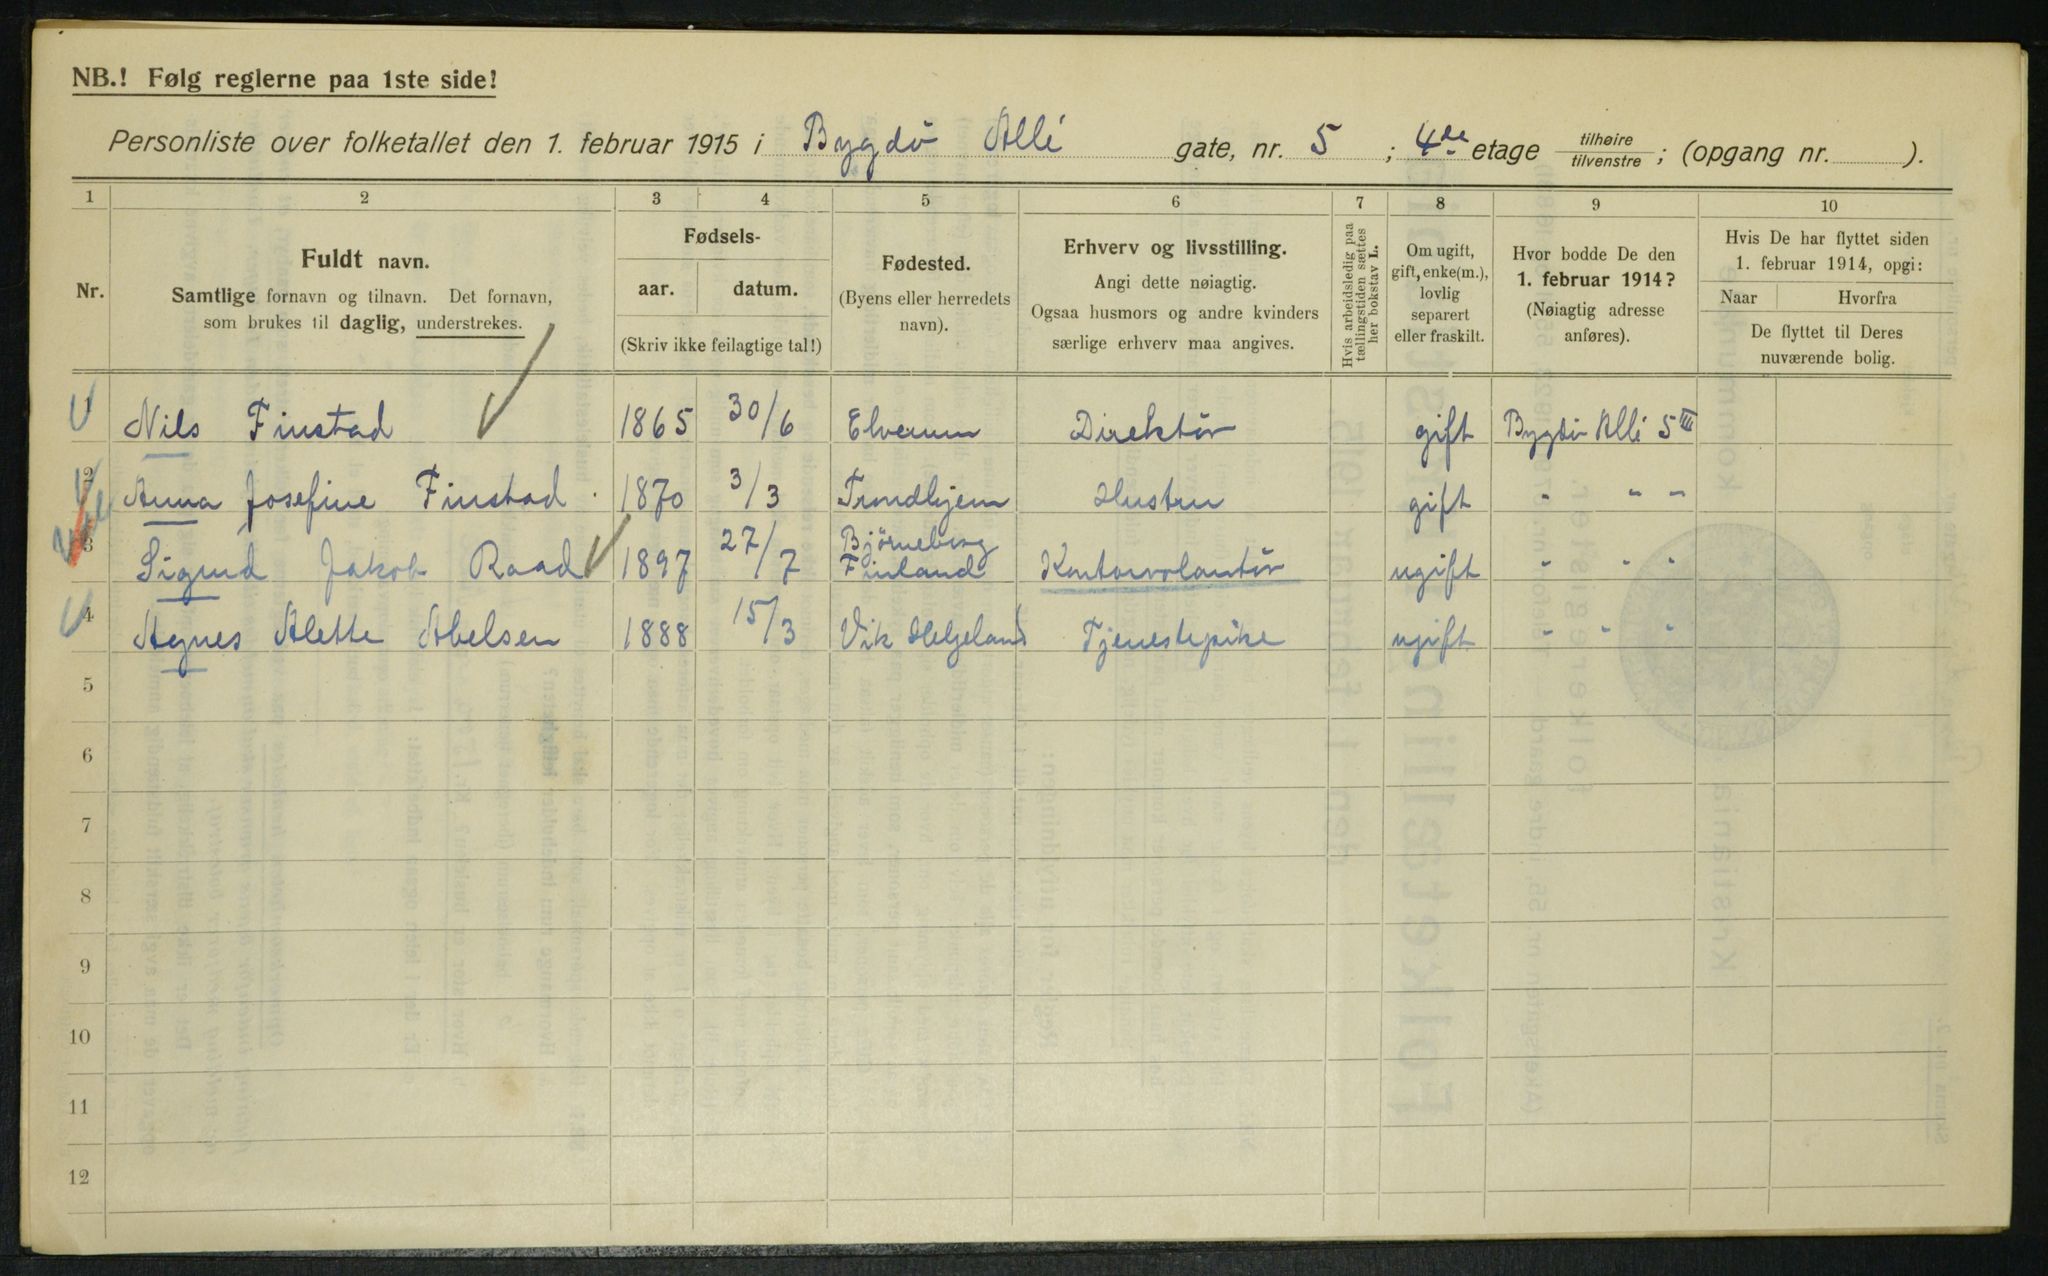 NB.! Følg reglerne paa 1ste side!
Personliste over folketallet den 1. februar 1915 i Bygdö Allé gate, nr. 5 ; 4de etage tilhøire tilvenstre ; (opgang nr. ).
1 2 3 4 5 6 7 8 9 10
Nr.
Fuldt navn.
Samtlige fornavn og tilnavn. Det fornavn,
som brukes til daglig, understrekes.
Fødsels-
aar. datum.
(Skriv ikke feilagtige tal!)
Fødested.
(Byens eller herredets
navn).
Erhverv og livsstilling.
Angi dette nøiagtig.
Ogsaa husmors og andre kvinders
særlige erhverv maa angives.
Hvis arbeidsledig paa
tællingstiden sættes
her bokstav L.
Om ugift,
gift, enke(m.),
lovlig
separert
eller fraskilt.
Hvor bodde De den
1. februar 1914?
(Nøiagtig adresse
anføres).
Hvis De har flyttet siden
1. februar 1914, opgi:
Naar Hvorfra
De flyttet til Deres
nuværende bolig.
1 Nils Finstad 1865 30/6 Elverum Direktör gift Bygdö Allé 5 III
2 Anna Josefine Finstad 1870 3/3 Trondhjem Hustru gift " " "
3 Sigurd Jakob Raad 1897 27/7 Björneborg Finland Kontorvolontör ugift " " "
4 Agnes Alette Abelsen 1888 15/3 Vik Helgeland Tjenestepike ugift " " "
5
6
7
8
9
10
11
12